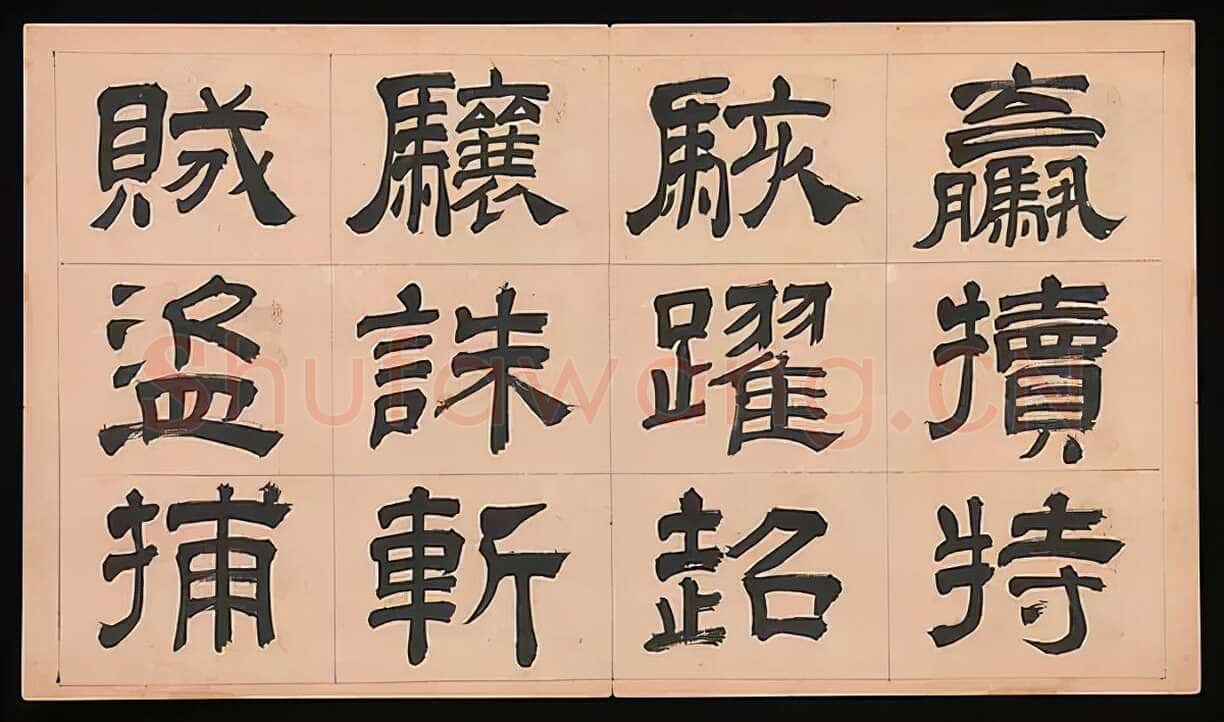 驘犢特
駭躍超
驤誅斬
賊盜捕
Shufawang.cn